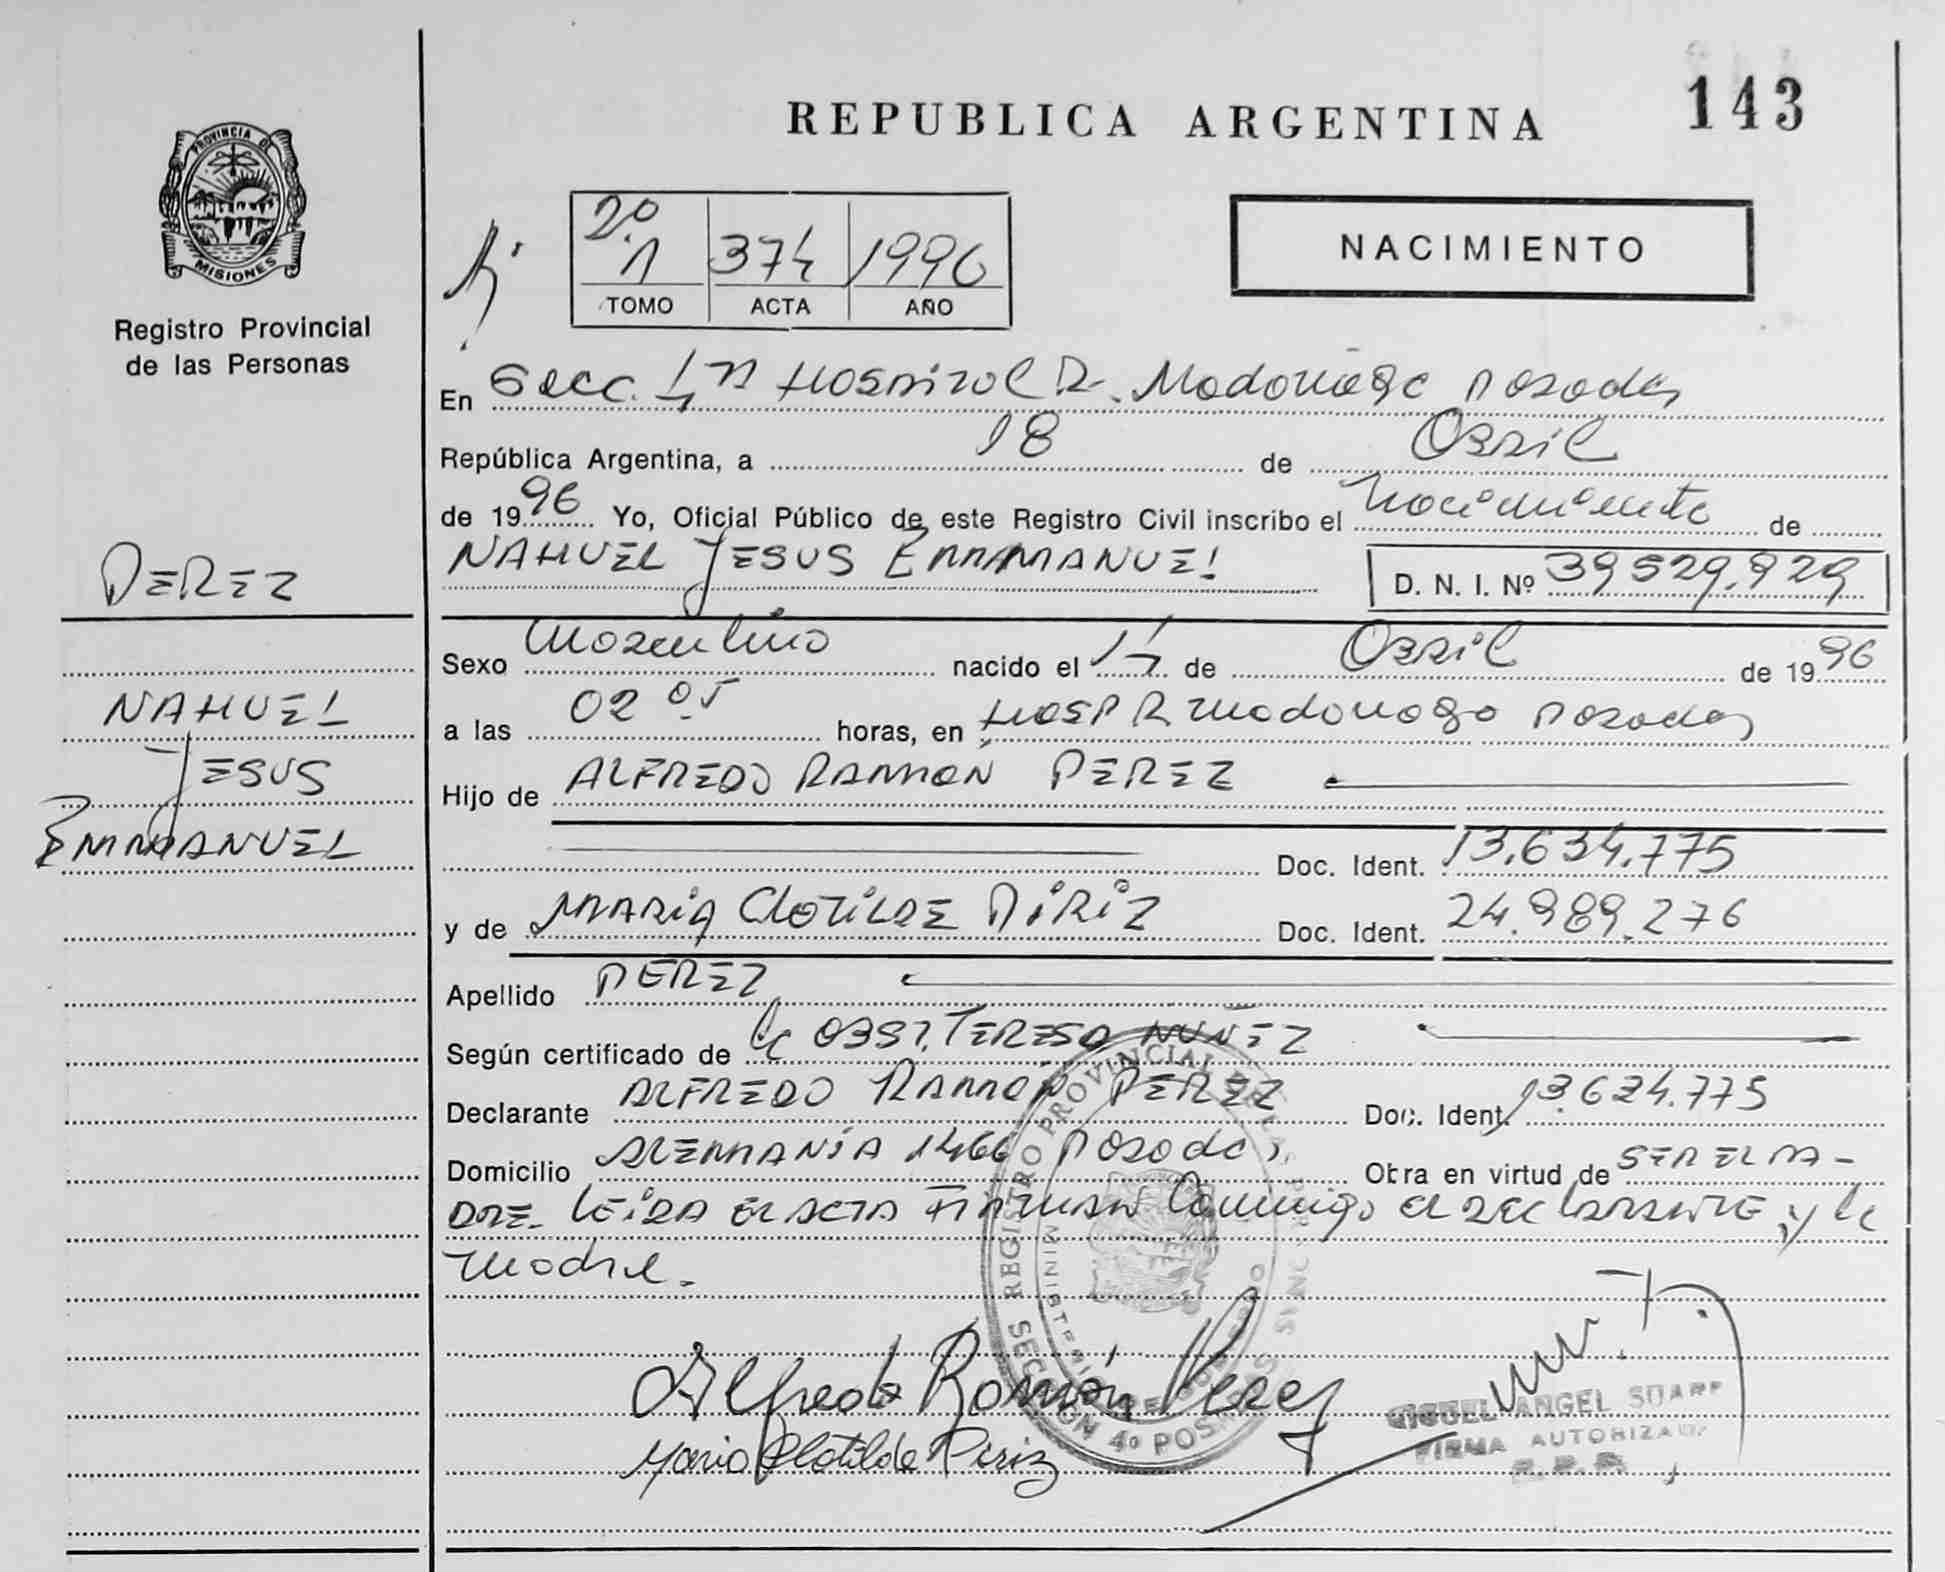 143
REPUBLICA ARGENTINA
PROVINCIA DE
MISIONES
Registro Provincial
de las Personas
2º
1 374 1996
TOMO ACTA AÑO
NACIMIENTO
En Secc. 4ta Hospital R. Madariaga Posadas
República Argentina, a 18 de Abril
de 1996 Yo, Oficial Público de este Registro Civil inscribo el Nacimiento de
NAHUEL JESUS EMMANUEL D. N. I. Nº 39.529.929
PEREZ
Sexo Masculino nacido el 17 de Abril de 1996
NAHUEL
JESUS
EMMANUEL
a las 02 05 horas, en HOSP R Madariaga Posadas
Hijo de ALFREDO RAMON PEREZ
Doc. Ident. 13.634.775
y de MARIA CLOTILDE PIRIZ Doc. Ident. 24.989.276
Apellido PEREZ
Según certificado de la OBST. TERESA NUÑEZ
Declarante ALFREDO RAMON PEREZ Doc. Ident. 13.634.775
Domicilio ALEMANIA 1466 Posadas Obra en virtud de SER EL PA-
DRE. LEIDA EL ACTA FIRMAN Conmigo el DECLARANTE y la
Madre.
REGISTRO PROVINCIAL DE LAS
SECCION 4º POSADAS
Alfredo Ramón Perez
Maria Clotilde Piriz
MIGUEL ANGEL SUAREZ
FIRMA AUTORIZADA
R. P. P.